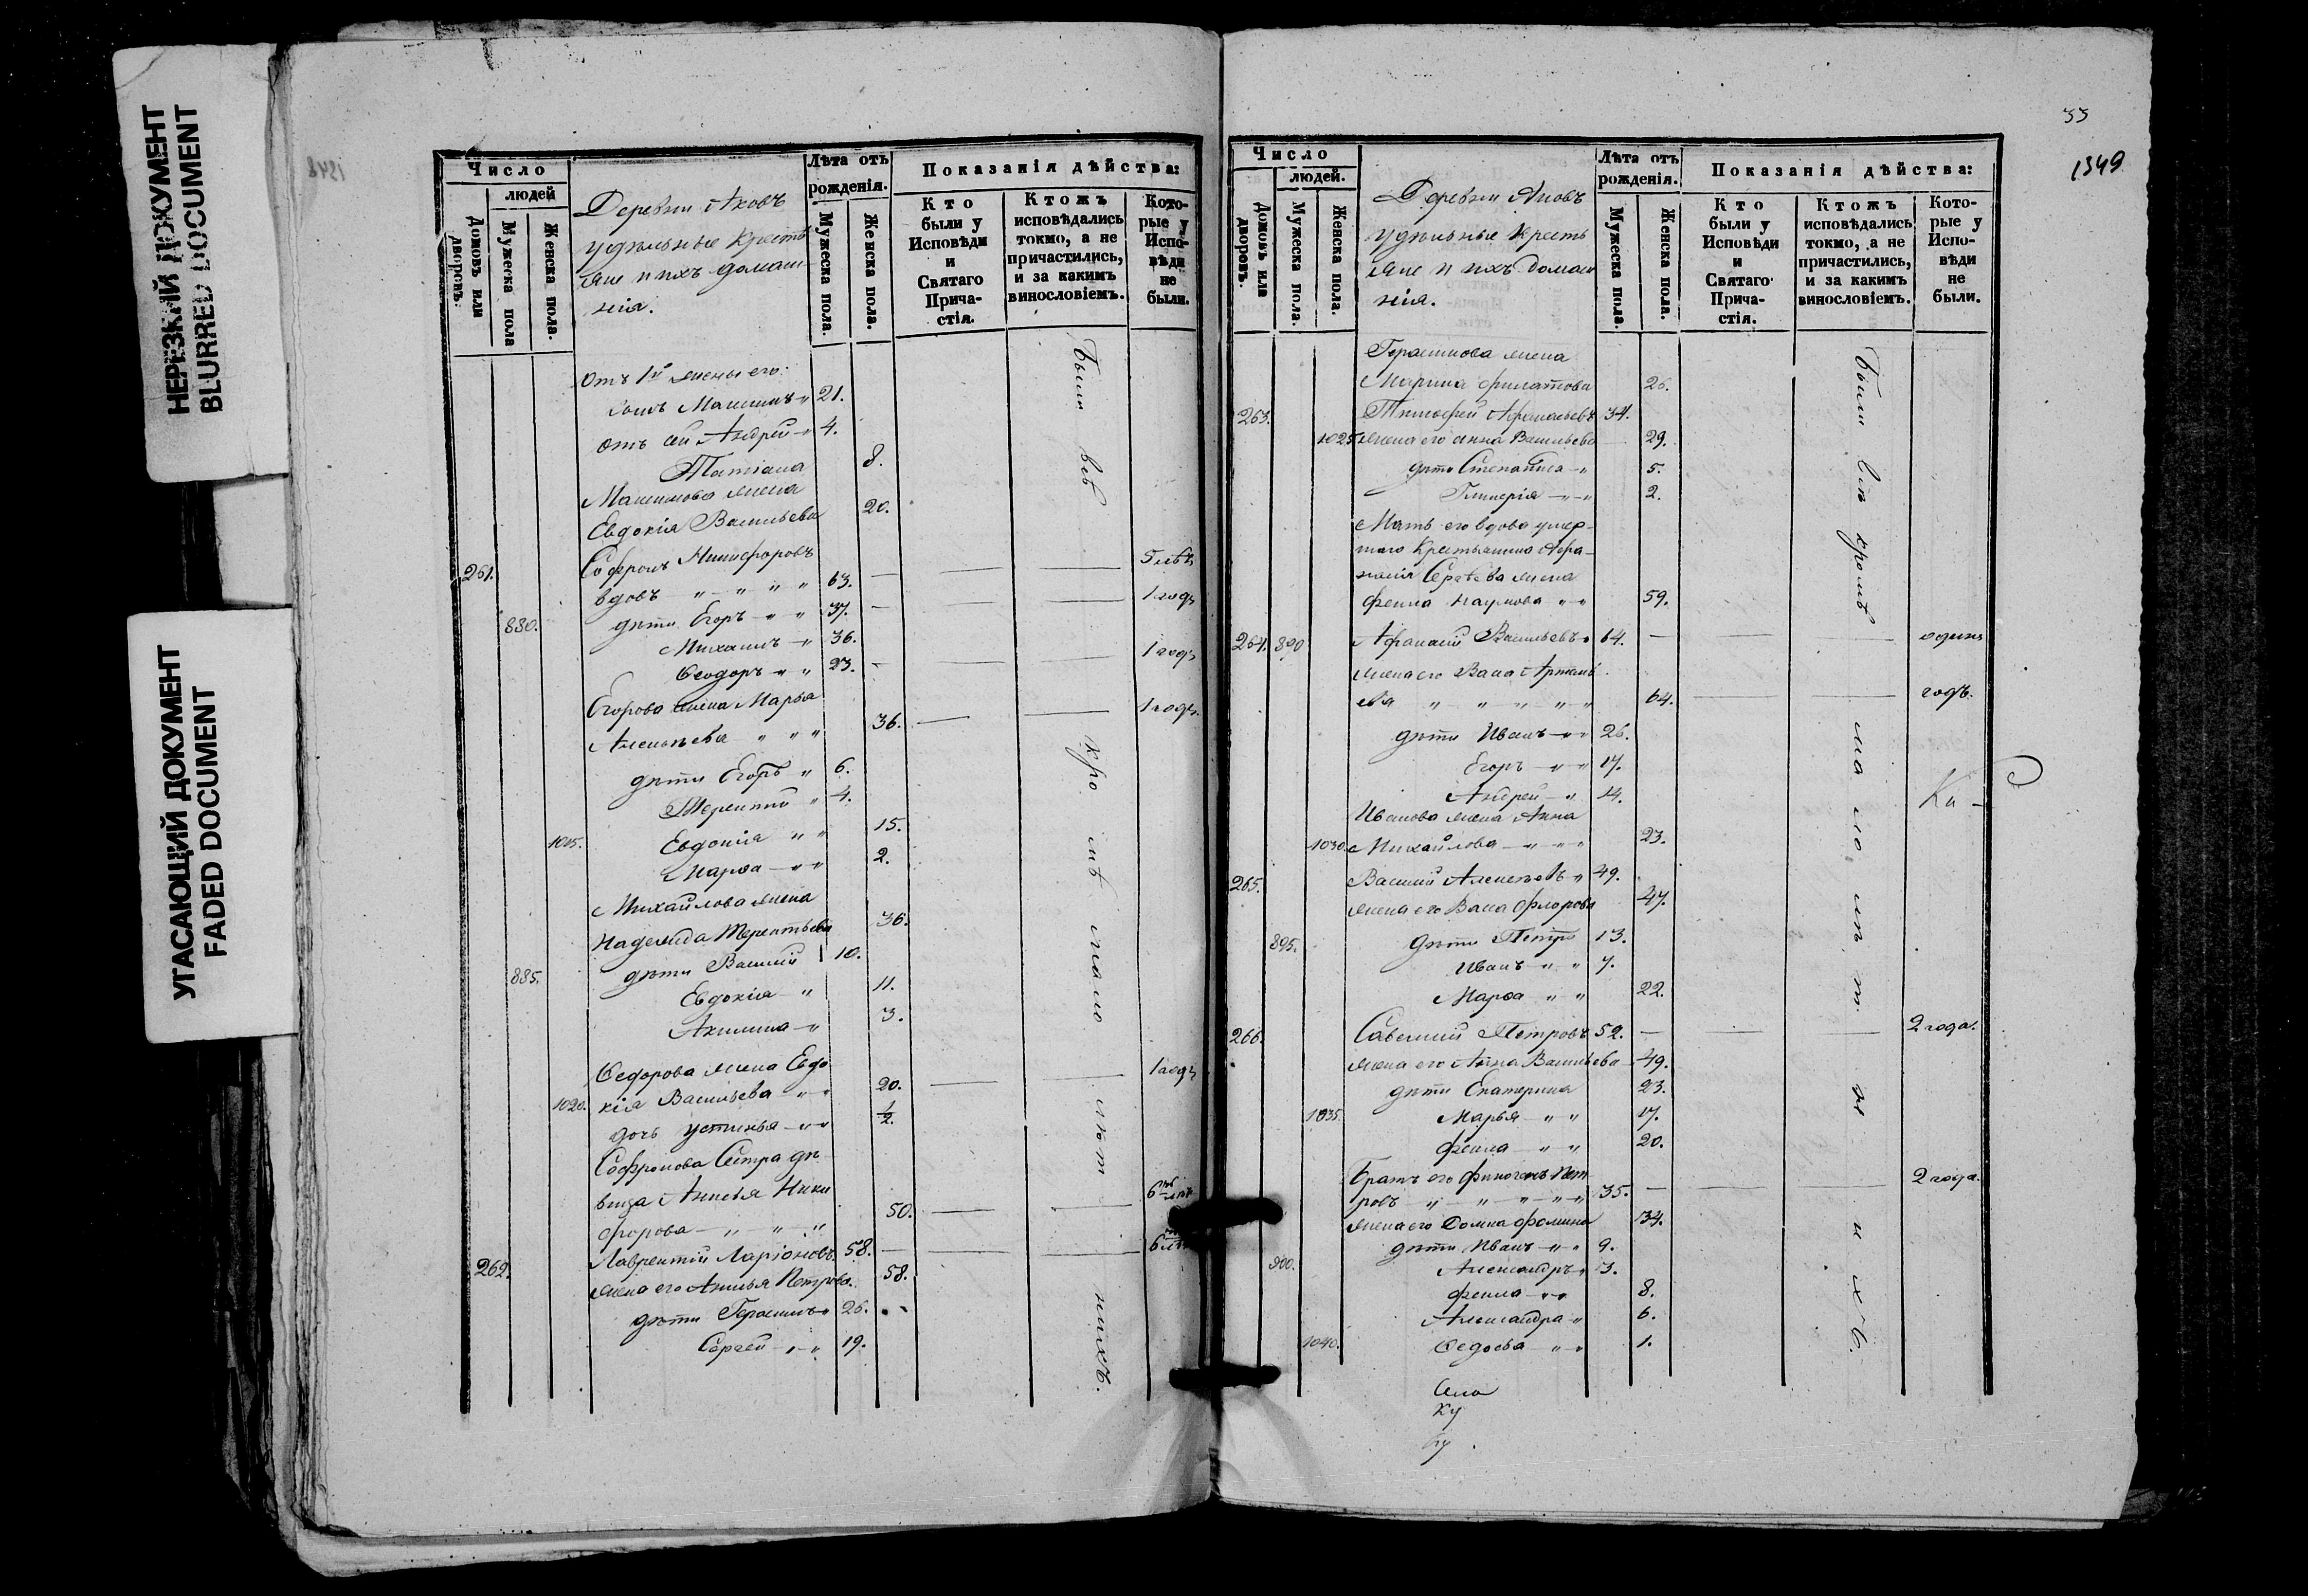 НЕРЕЗКИЙ ДОКУМЕНТ
BLURRED DOCUMENT
УГАСАЮЩИЙ ДОКУМЕНТ
FADED DOCUMENT
Число
людей
Домовъ или дворовъ.
Мужеска пола
Женска пола.
Деревни
удѣльные кресть
яне и ихъ домаш
нія.
Лѣта отъ
рожденія.
Мужеска пола.
Женска пола.
Показанія дѣйства:
Кто
были у
Исповѣди
и
Святаго
Прича-
стія.
Ктожъ
исповѣдались
токмо, а не
причастились,
и за какимъ
винословіемъ.
Кото-
рые у
Испо-
вѣди
не
были.
отъ 1й жены его:
сынъ Максимъ 21.
отъ сей Андрей 4.
Татіана 8.
Максимова жена
Евдокія Васильева 20.
261. Софронъ Никифоровъ 5 лѣтъ
вдовъ 63.
880. дѣти Егоръ 37. 1 годъ
Михаилъ 36.
Ѳеодоръ 23. 1 годъ
Егорова жена Марѳа
Алексѣева 36. 1 годъ.
дѣти Егоръ 6.
Терентій 4.
1015. Евдокія 15.
Марѳа 2.
Михайлова жена
Надежда Терентьева 36.
885. дѣти Василій 10.
Евдокія 11.
Акилина 3.
Ѳедорова жена Евдо
1020. кія Васильева 20. 1 годъ
дочь Устинья 1/2.
Софронова Сестра дѣ
вица Ники
форова 50. 6
262. Лаврентій Ларіоновъ. 58. 6
жена его Петрова. 58.
дѣти Герасимъ 26.
Сергей 19.
Были всѣ кромѣ мало лѣт нихъ.
33
1349
Число
людей.
Домовъ или дворовъ.
Мужеска пола.
Женска пола.
Деревни
удѣльные кресть
яне и ихъ домаш
нія.
Лѣта отъ
рожденія.
Мужеска пола.
Женска пола.
Показанія дѣйства:
Кто
были у
Исповѣди
и
Святаго
Прича-
стія.
Ктожъ
исповѣдались
токмо, а не
причастились,
и за какимъ
винословіемъ.
Кото-
рые у
Испо-
вѣди
не
были.
Герасимова жена
Марина Филатова 26.
263. Тимофей Афанасьевъ 34.
1025. жена его Анна Васильева 29.
дѣти Степанида 5.
Гликерія 2.
Мать его вдова умер-
шаго Крестьянина Афа-
насія жена
Фекла Наумова 59.
264. 890 Афанасій Васильевъ 64. одинъ
жена его Васа Артемь
ева 64. годъ.
дѣти Иванъ 26.
Егоръ 17.
Андрей 14.
Иванова жена Анна
1030. Михайлова 23.
265. Василій Алексѣевъ 49.
жена его Васа Флорова 47.
895. дѣти Петръ 13.
Иванъ 7.
Марѳа 22.
266. Савелій Петровъ 52. 2 года.
жена его Анна Васильева 49.
дѣти Екатерина 23.
1035. Марья 17.
Фекла 20.
Братъ его Финогенъ Пет
ровъ 35. 2 года.
жена его Домна Фомина 34.
дѣти Иванъ 9.
900. Александръ 3.
Фекла 8.
Александра 6.
1040. Ѳедосья 1.
Были всѣ кромѣ мало лѣт нихъ.
Ки
Села
Ку